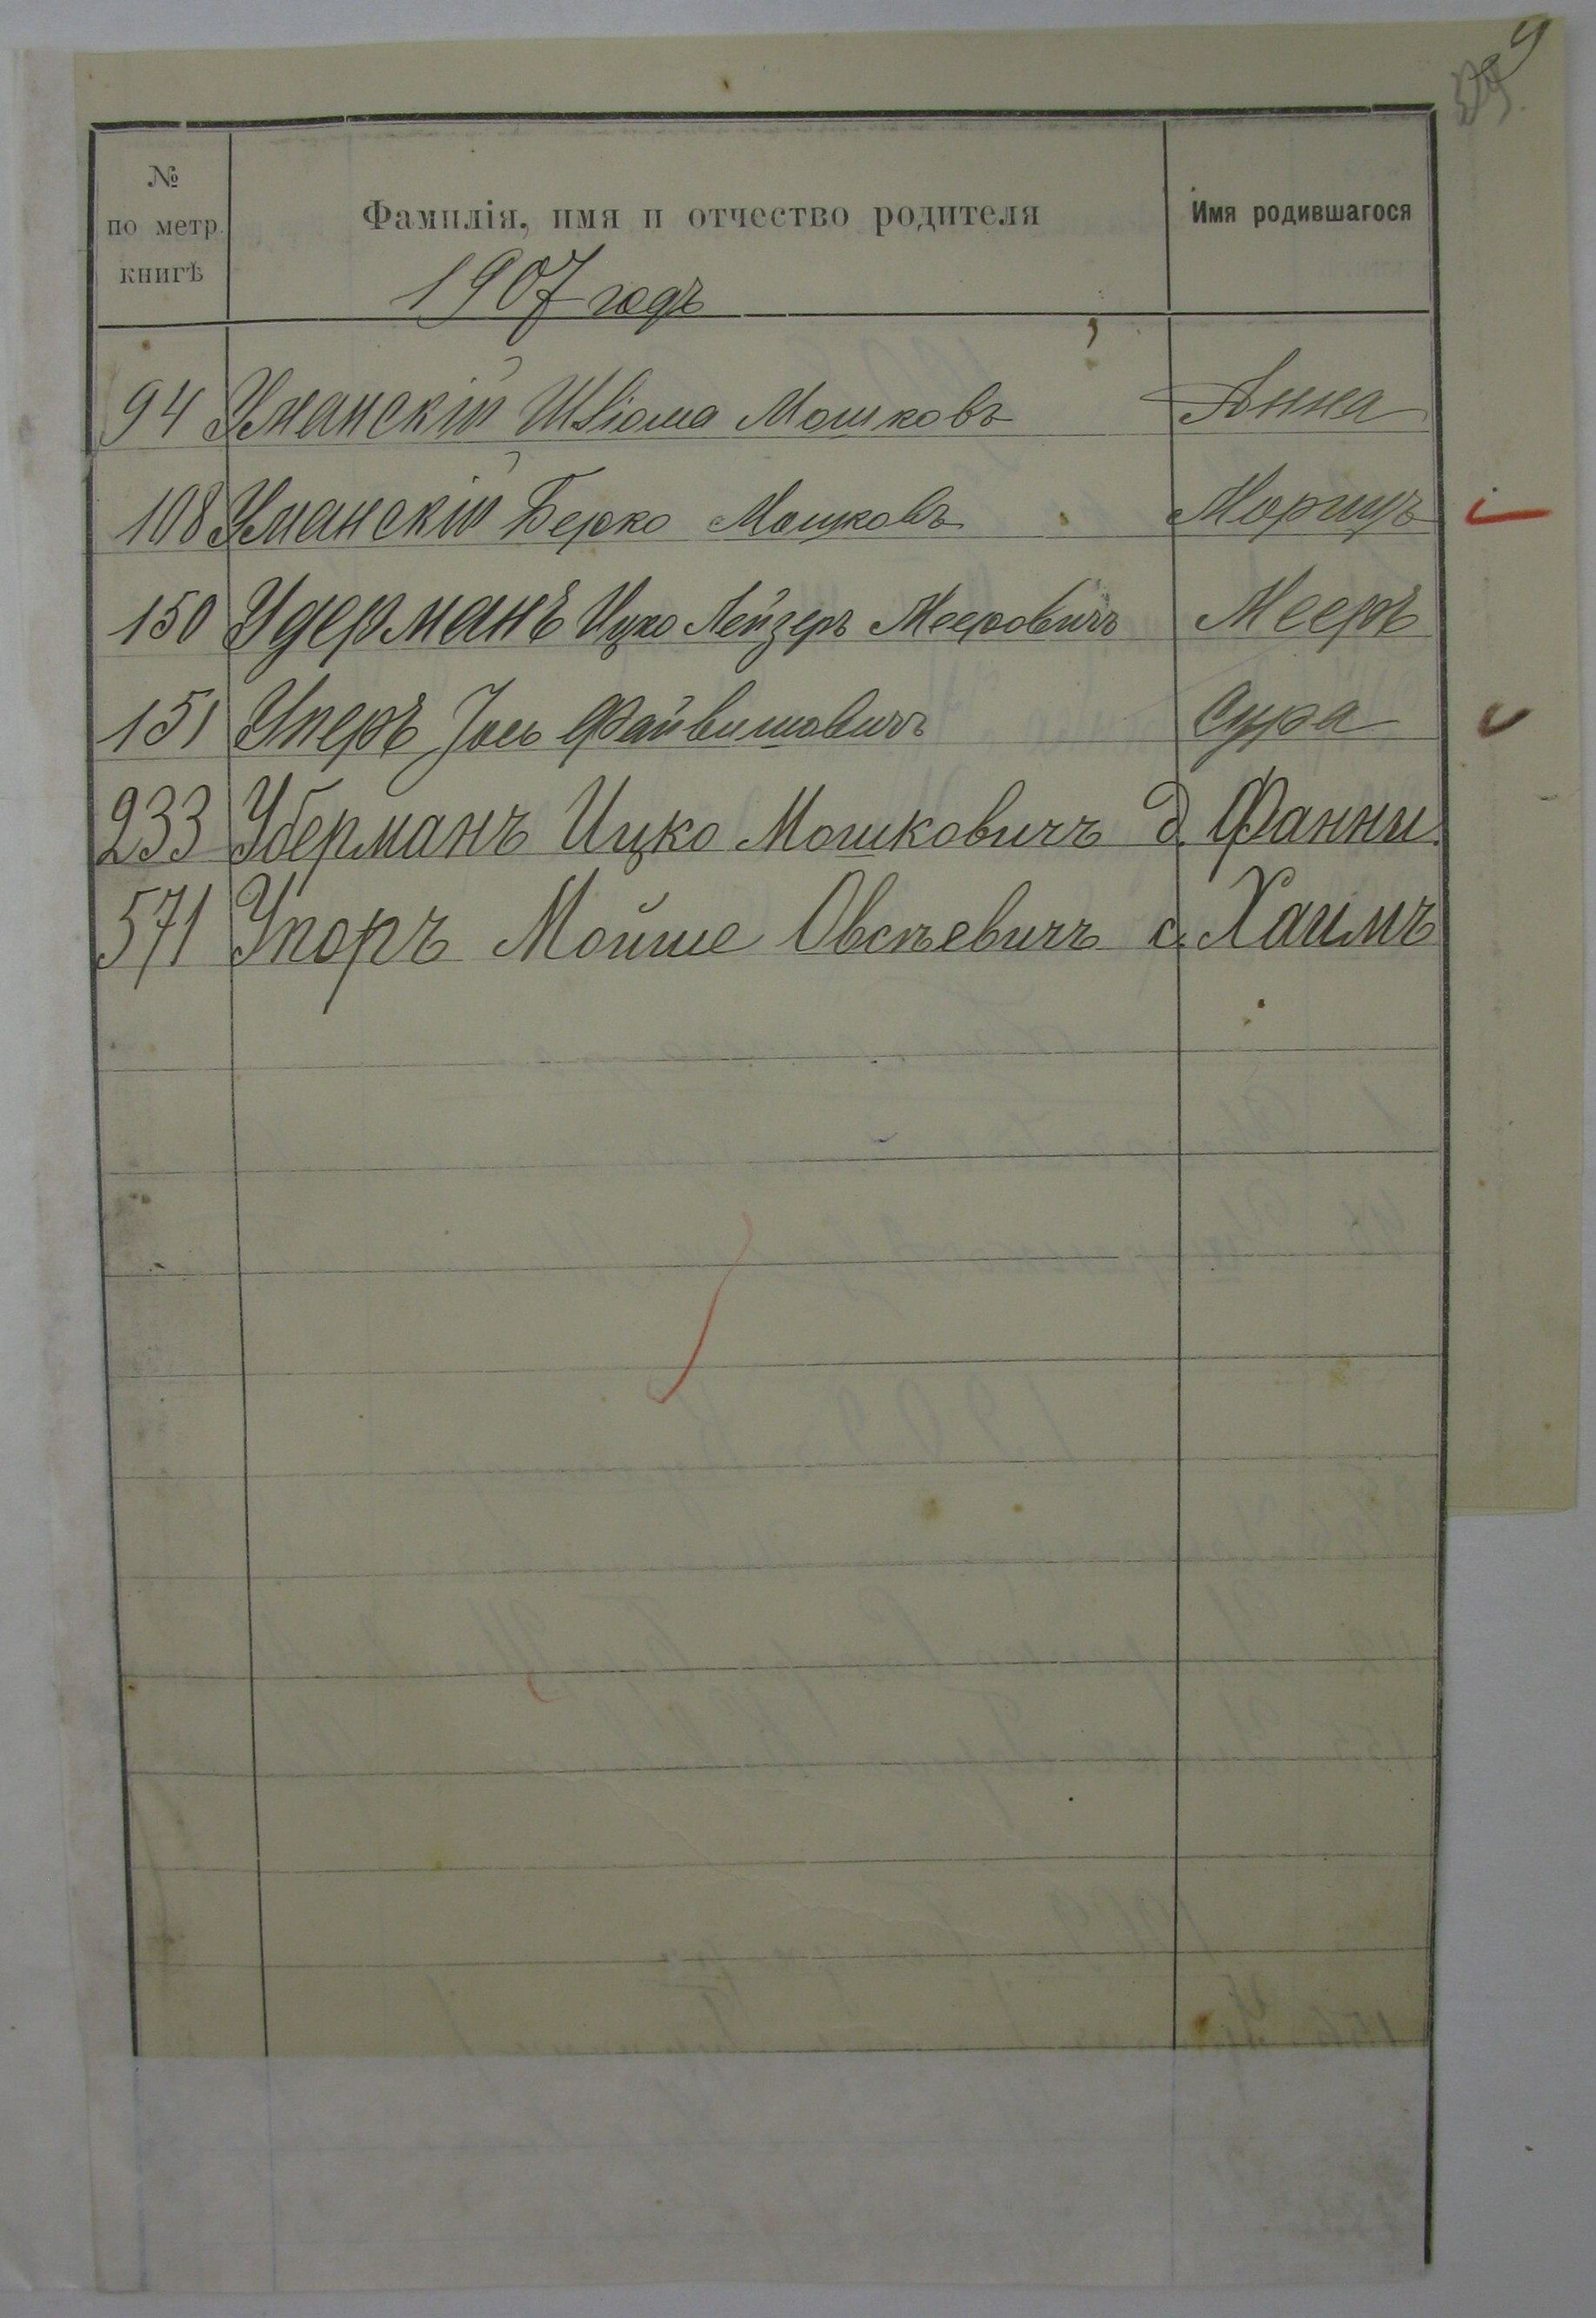 9
№ по метр. книгѣ
Фамилія, имя и отчество родителя
Имя родившагося
1907 годъ
94 Уманскій Шлiома Мошковъ Анна
108 Уманскій Берко Мошковъ Морицъ
150 Удерманъ Ицко Лейзеръ Мееровичъ Мееръ
151 Уперъ Іось Файвишовичъ Сура
233 Уберманъ Ицко Мошковичъ д. Фанни.
571 Упоръ Мойше Овсѣевичъ с. Хаимъ